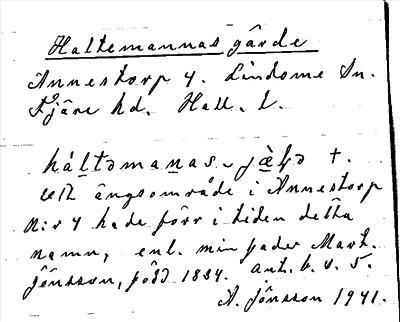 Haltemannas gärde
Annestorp 4. Lindome Sn.
Fjäre hd. Hall. l.
háltəmaṉas⌣jæ̀ɖə +.
ett ängsområde i Annestorp
N:r 4 hade förr i tiden detta
namn, enl. min fader Mart.
Jönsson, född 1834. ant. b. v. 5.
A. Jönsson 1941.